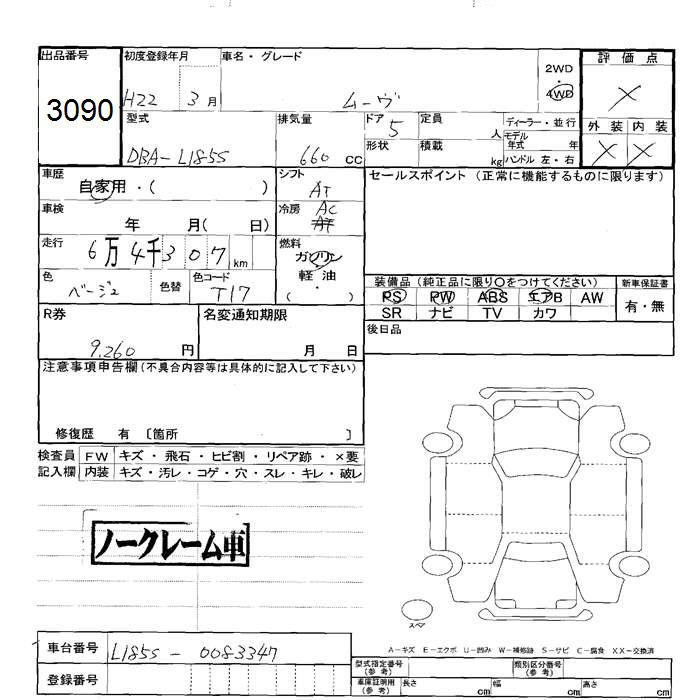 出品番号
3090
初度登録年月
H22 3月
車名・グレード
ムーヴ
2WD
・
4WD
評価点
×
外装 内装
× ×
型式
DBA-L185S
排気量
660 cc
ドア
5
形状
定員
人
積載
kg
ディーラー・並行
モデル年式 年
ハンドル 左・右
車歴
自家用・( )
シフト
AT
セールスポイント (正常に機能するものに限ります)
車検
年 月( 日)
冷房
AC
走行
6万4千307km
燃料
ガソリン
軽油
( )
色
ベージュ
色替
色コード
T17
装備品 (純正品に限り○をつけてください)
新車保証書
PS PW ABS エアB AW
有・無
SR ナビ TV カワ
R券
9,260 円
名変通知期限
月 日
後日品
注意事項申告欄(不具合内容等は具体的に記入して下さい)
修復歴 有 〔箇所 〕
検査員記入欄
FW キズ・飛石・ヒビ割・リペア跡・×要
内装 キズ・汚レ・コゲ・穴・スレ・キレ・破レ
ノークレーム車
スペア
車台番号
L185S-0083347
登録番号
A-キズ E-エクボ U-凹み W-補修跡 S-サビ C-腐食 XX-交換済
型式指定番号(参考)
類別区分番号(参考)
車庫証明用(参考)
長さ cm 幅 cm 高さ cm